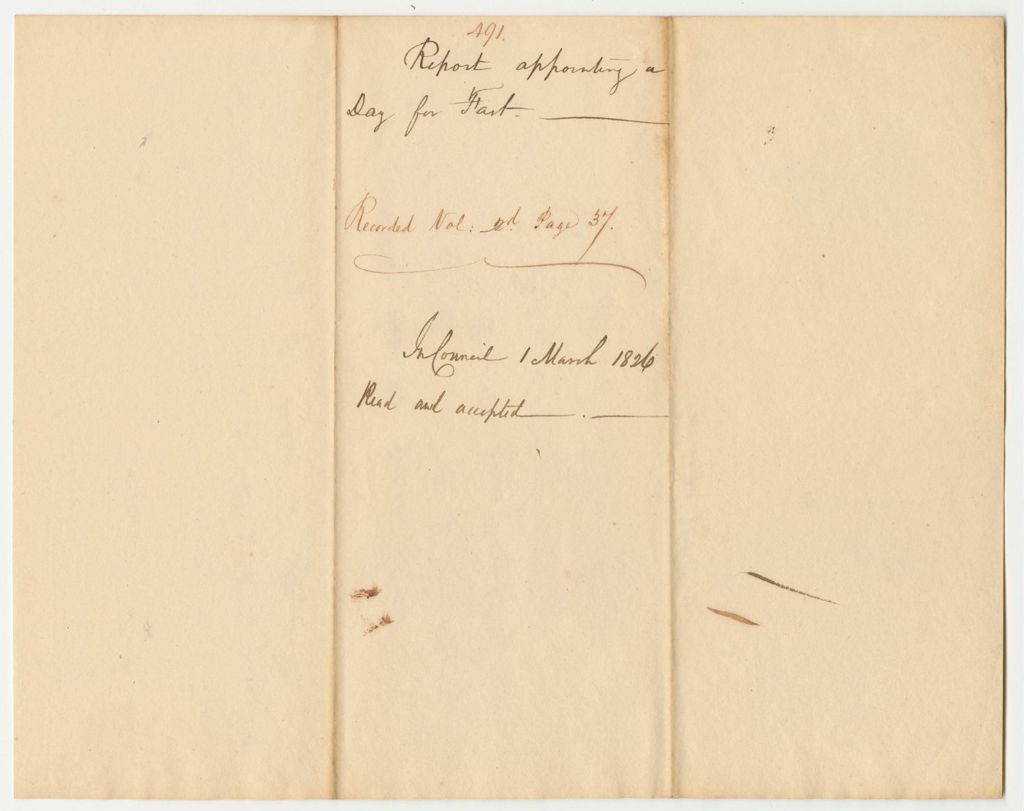 491.
Report appointing a
Day for Fast.
Recorded Vol: 2d. Page 37.
In Council 1 March 1826
Read and accepted .